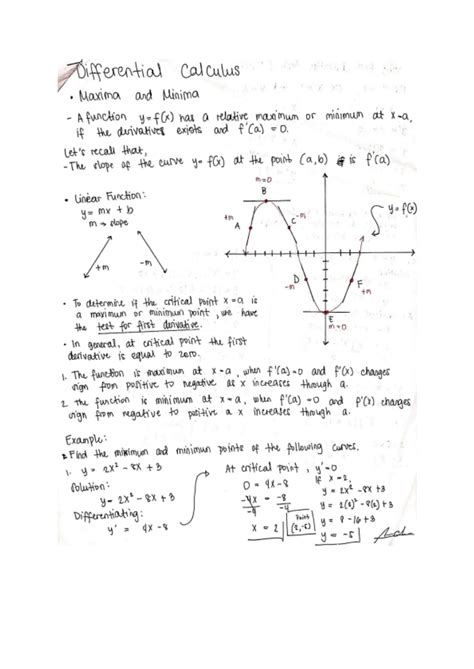 Differential Calculus
• Maxima and Minima
- A function y=f(x) has a relative maximum or minimum at x=a,
if the derivatives exists and f'(a) = 0.
Let's recall that,
- The slope of the curve y= f(x) at the point (a,b) is f'(a)
• Linear Function:
y = mx + b
m → slope
+m
-m
m=0
B
+m
A
C
-m
y=f(x)
D
-m
F
+m
E
m=0
• To determine if the critical point x=a is
a maximum or minimum point, we have
the test for first derivative.
• In general, at critical point the first
derivative is equal to zero.
1. The function is maximum at x=a, when f'(a)=0 and f'(x) changes
sign from positive to negative as x increases through a.
2. The function is minimum at x=a, when f'(a)=0 and f'(x) changes
sign from negative to positive a x increases through a.
Example:
Find the minimum and minimun points of the following curves.
1. y = 2x² - 8x + 3
Solution:
y = 2x² - 8x + 3
Differentiating:
y' = 4x - 8
At critical point, y'=0
0 = 4x - 8
-4x = -8
-4 -4
x = 2
Point
(2,-5)
If x=2,
y = 2x² - 8x + 3
y = 2(2)² - 8(2) + 3
y = 8 - 16 + 3
y = -5